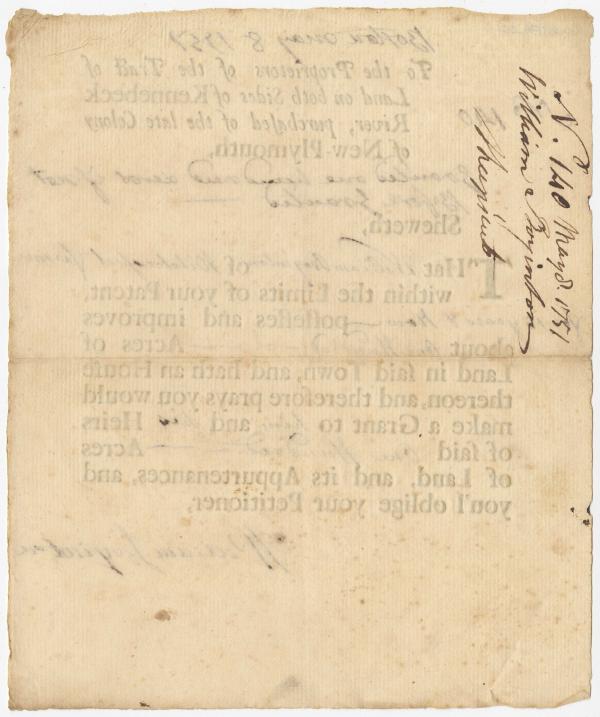 N. 140 May 8. 1751
William Boyinton
Sheepscut
Boston May 8 1751
140
To the Proprietors of the Tract of
Land on both Sides of Kennebeck
River, purchased of the late Colony
of New-Plymouth,
Granted one hundred acres if not
before Granted
Sheweth
THat William Boyinton of
within the Limits of your Patent,
possesses and improves
about Acres of
Land in said Town, and hath an House
thereon, and therefore prays you would
make a Grant to him and his Heirs
of said one Hundred Acres
of Land, and its Appurtenances, and
you'l oblige your Petitioner,
William Boyinton